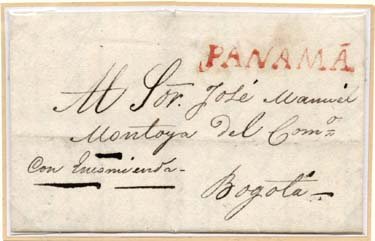 PANAMÁ
Al Sor. José Manuel
Montoya del Como
Con Encomienda.
Bogotá